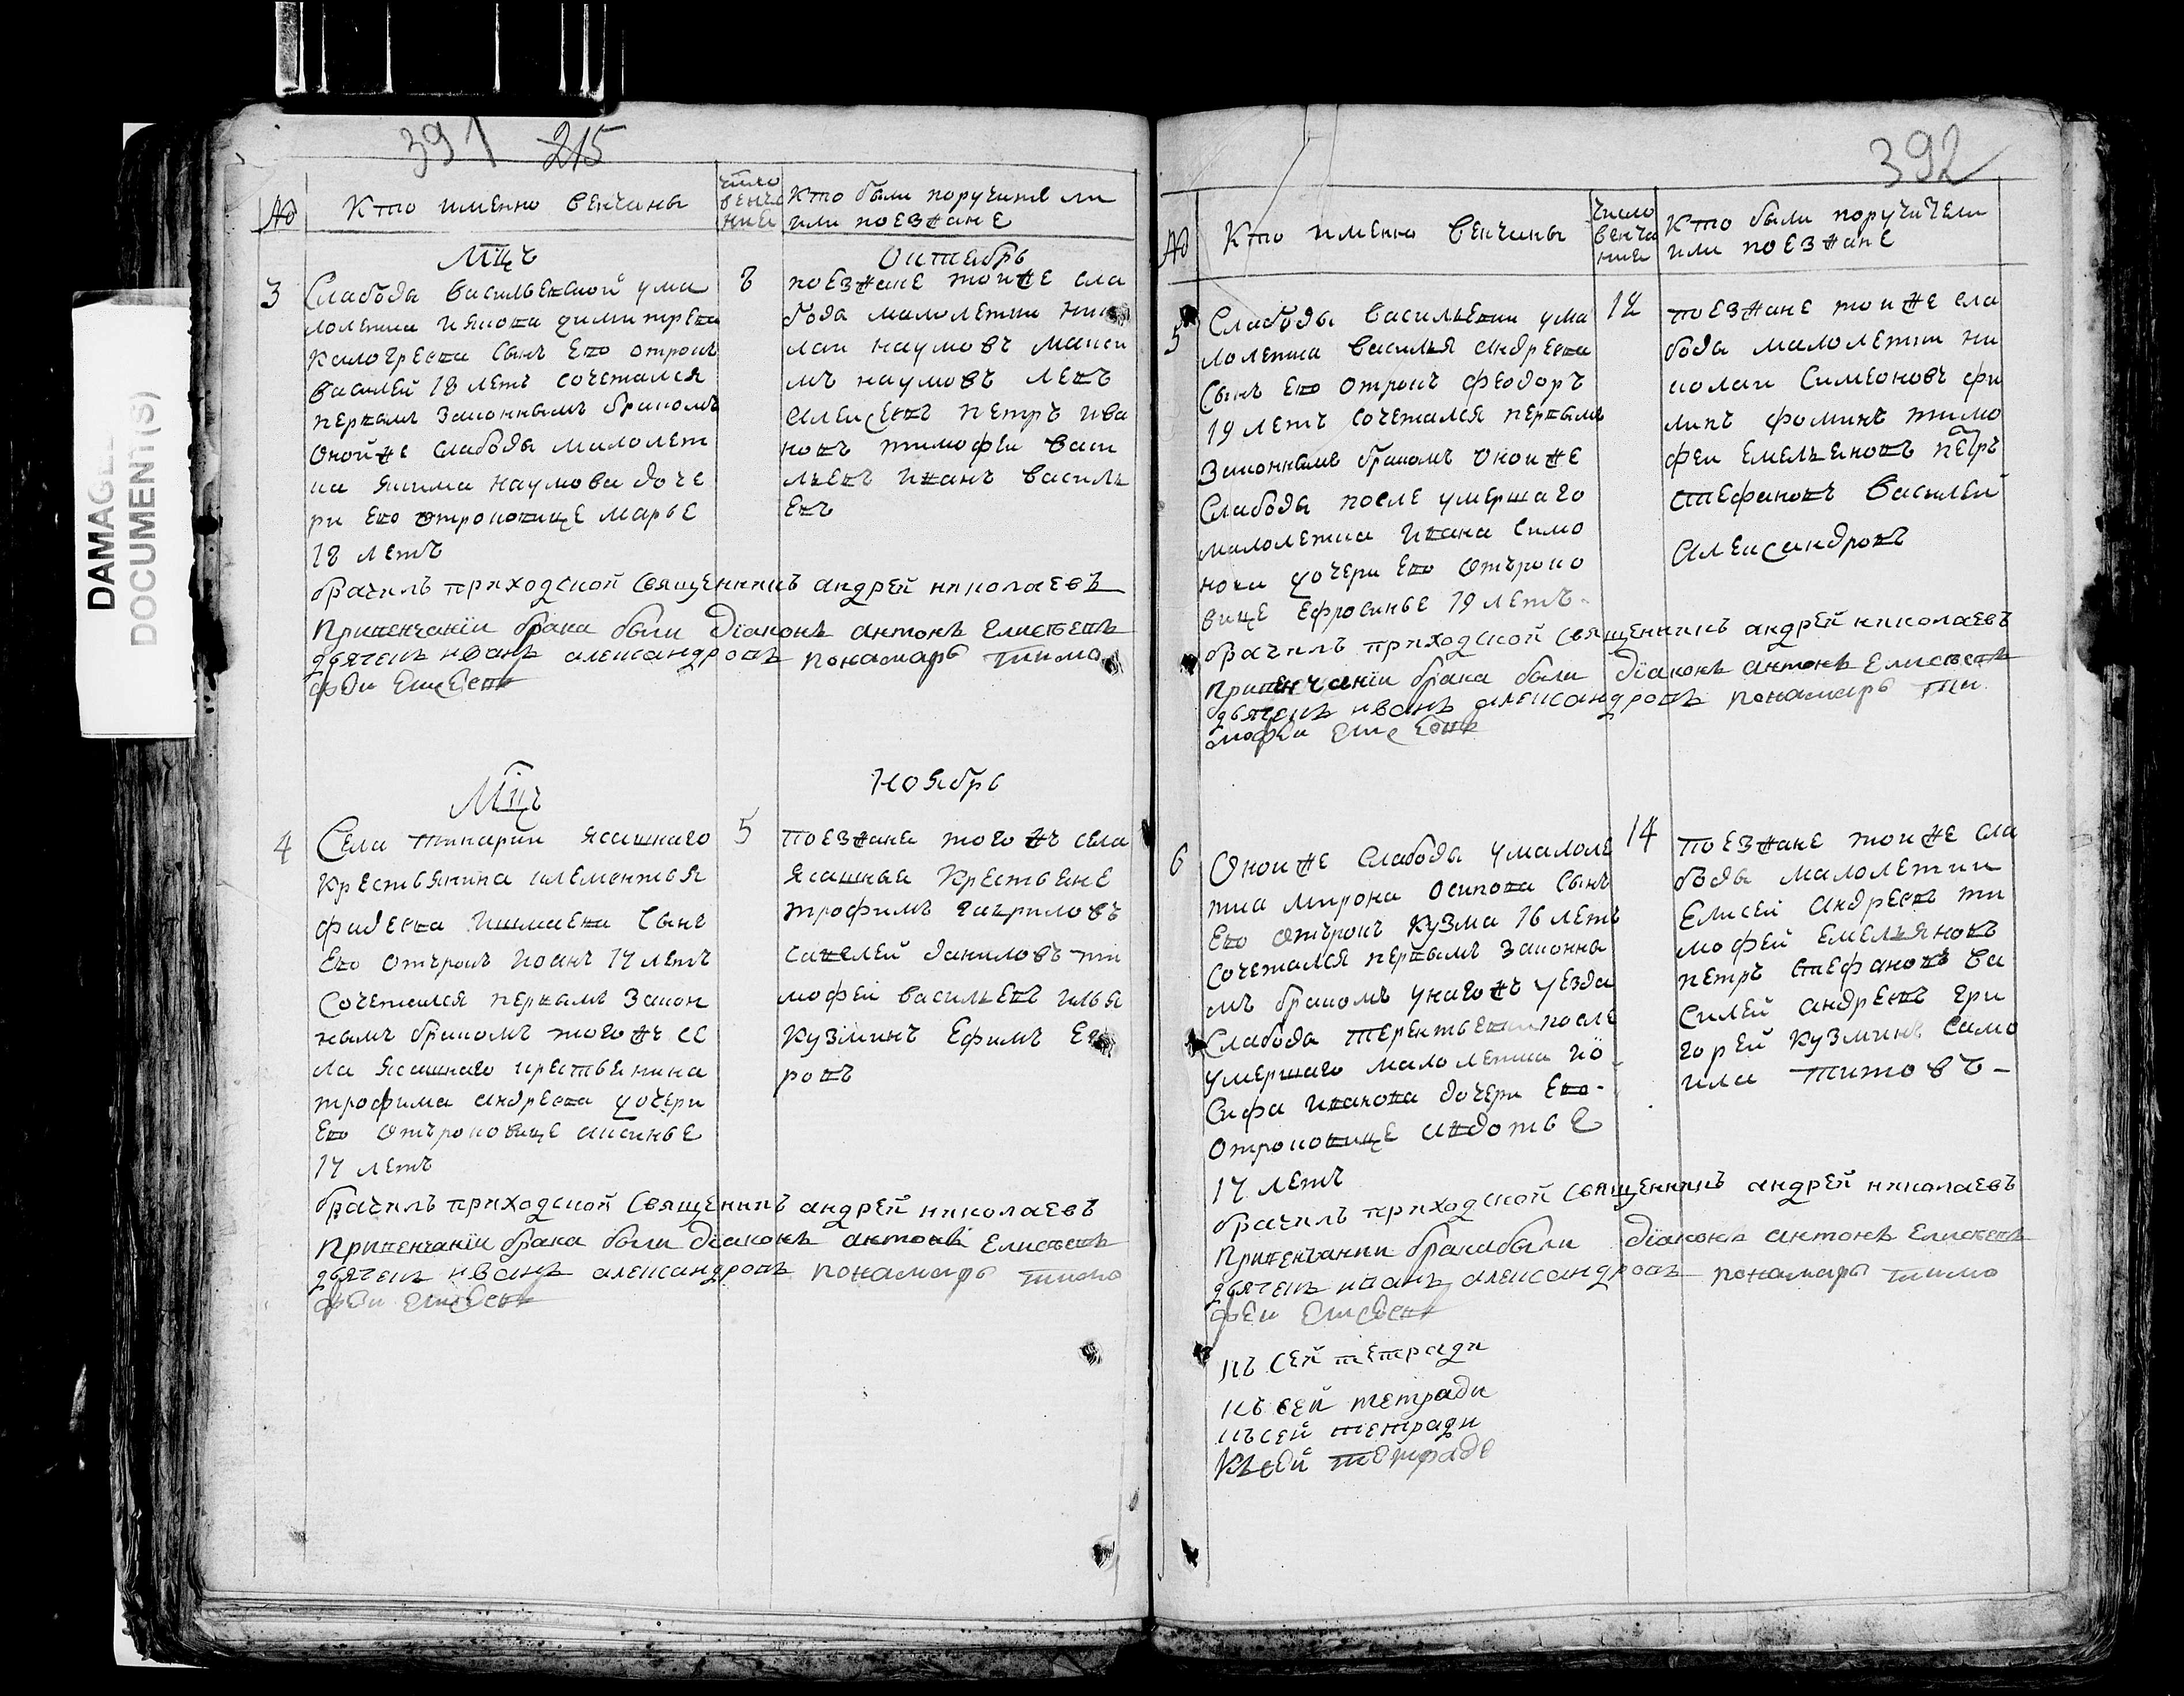 391 215
№
Кто именно венчаны
число венча ния
Кто были поручите ли
или поезжане
Мцъ
Октябрь
3
Слабоды васильевской у ма
лолетка
калогреева сынъ ево отрокъ
василей 18 летъ сочетался
первымъ законнымъ бракомъ
оной же слабоды малолет
ка якима наумова доче
ри ево отроковице марье
18 летъ
8
поезжане тои же сла
боды малолетки
лаи наумовъ макси
мъ наумовъ левъ
алексеевъ петръ ива
новъ тимофеи васи
льевъ иванъ василь
евъ
брачилъ приходской священникъ андрей николаевъ
Привенчаніи брака были діаконъ антонъ елисеевъ
дьячекъ иванъ александровъ понамарь тимо
фей елисеевъ
Мцъ
Ноябрь
4
Села ясашнаго
крестьянина клементья
фадеева сынъ
ево отърокъ иоанъ 17 летъ
сочетался первымъ закон
нымъ бракомъ того жъ се
ла ясашнаго крестьянина
трофима андреева дочери
ево отъроковице аксинье
17 летъ
5
поезжана того жъ села
ясашныя крестьяне
трофимъ гавриловъ
савелей даниловъ ти
мофей васильевъ илья
кузминъ ефимъ
ровъ
брачилъ приходской священникъ андрей николаевъ
Привенчаніи брака были діаконъ антонъ елисеевъ
дьячекъ иванъ александровъ понамарь тимо
фей елисеевъ
392
№
Кто именно венчаны
число венча ния
Кто были поручители
или поезжане
5
Слабоды васильевки у ма
лолетка василья андреева
сынъ ево отрокъ феодоръ
19 летъ сочетался первымъ
законнымъ бракомъ онои же
слабоды после умершаго
малолетка ивана симо
нова дочери ево отъроко
вице ефросинье 19 летъ -
12
поезжане тои же сла
боды малолетки ни
колаи симеоновъ фи
липъ фоминъ тимо
феи емельеновъ петръ
стефановъ василей
александровъ
брачилъ приходской священникъ андрей николаевъ
привенчаніи брака были діаконъ антонъ елисеевъ
дьячекъ иванъ александровъ понамарь ти
мофеи елисеевъ
6
Онои же слабоды у малоле
тка мирона осипова сынъ
ево отърокъ кузма 16 летъ
сочетался первымъ законны
мъ бракомъ уезда
слабода после
умершаго малолетка ио
сифа иванова дочери ево -
отроковице авдотье
17 летъ
14
поезжане тои же сла
боды малолетки
елисей андреевъ ти
мофей емельяновъ
петръ стефановъ ва
силей андреевъ гри
горей кузминъ само
ила титовъ -
брачилъ приходской священникъ андрей николаевъ
Привенчании брака были діаконъ антонъ елисеевъ
дьячекъ иванъ александровъ понамарь тимо
феи елисеевъ
къ сей тетради
къ сеи тетради
къ сей тетради
къ сей тетраде
DAMAGED
DOCUMENT(S)